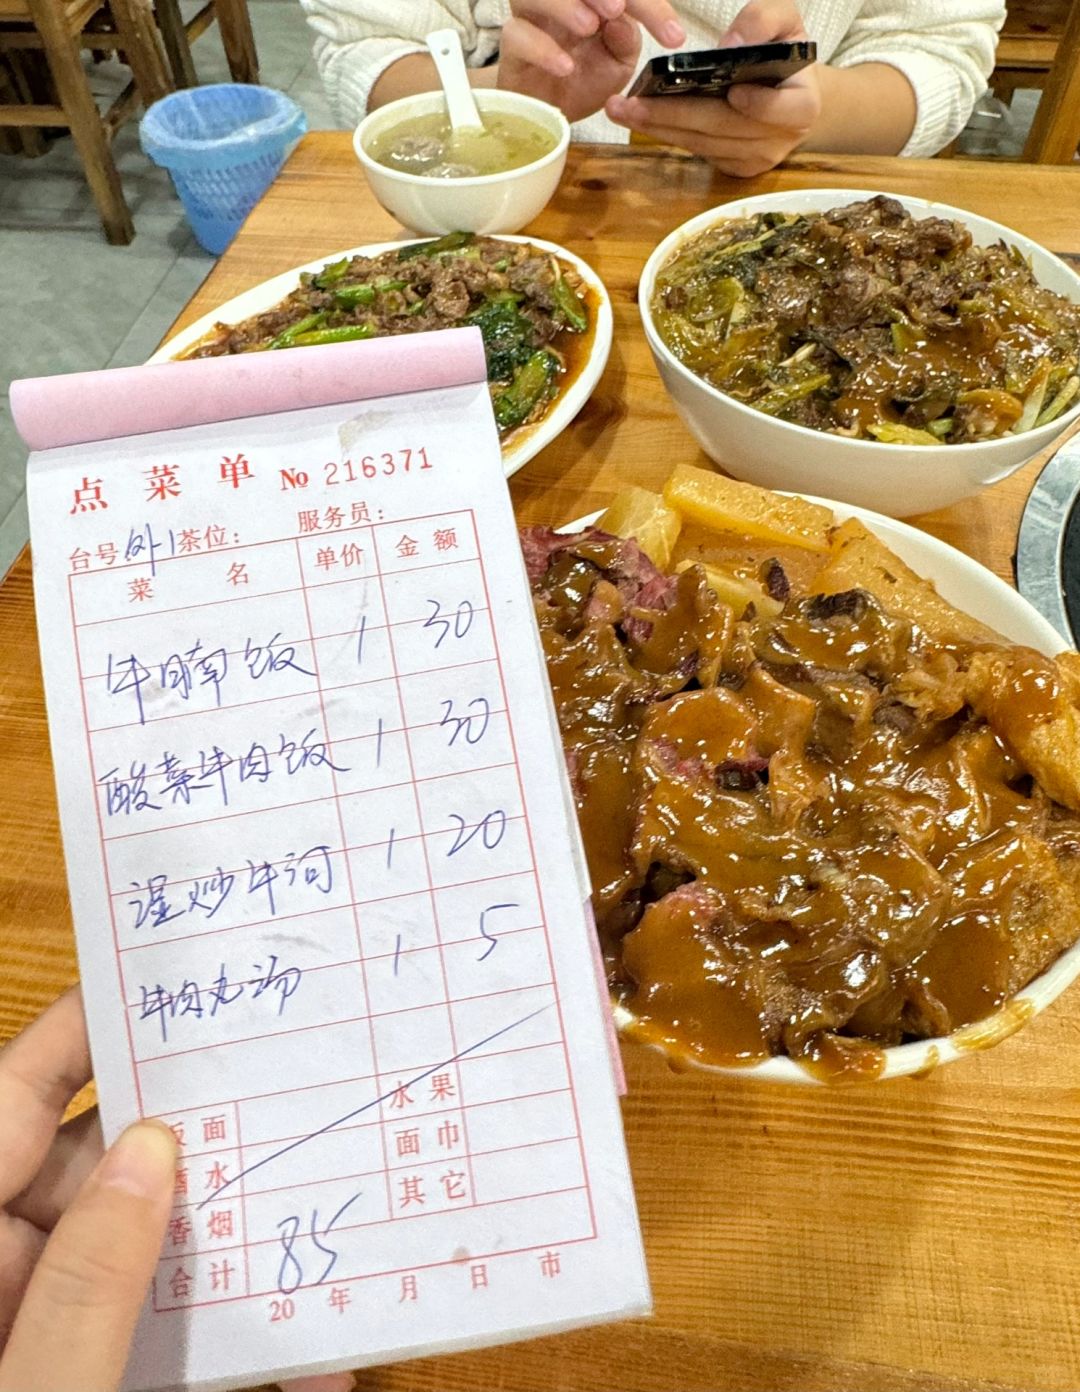 点菜单 № 216371
台号外1茶位: 服务员:
菜名 单价 金额
牛腩饭 1 30
酸菜牛肉饭 1 30
湿炒牛河 1 20
牛肉丸汤 1 5
饭面 水果
酒水 面巾
香烟 其它
合计 85
20 年 月 日 市